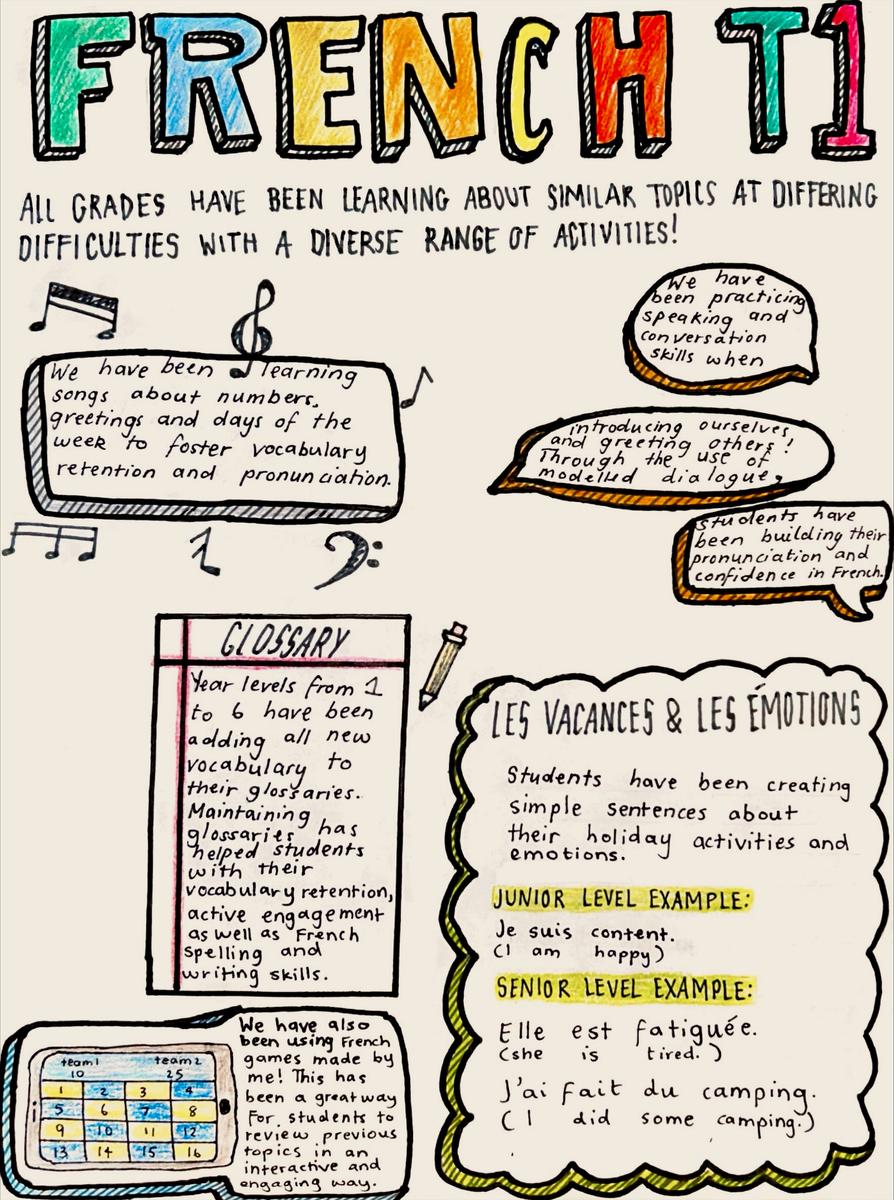 FRENCH T1
ALL GRADES HAVE BEEN LEARNING ABOUT SIMILAR TOPICS AT DIFFERING
DIFFICULTIES WITH A DIVERSE RANGE OF ACTIVITIES!
We have been learning
songs about numbers,
greetings and days of the
week to foster vocabulary
retention and pronunciation.
We have
been practicing
speaking and
conversation
skills when
introducing ourselves
and greeting others!
Through the use of
modelled dialogue,
students have
been building their
pronunciation and
confidence in French.
GLOSSARY
Year levels from 1
to 6 have been
adding all new
vocabulary to
their glossaries.
Maintaining
glossaries has
helped students
with their
vocabulary retention,
active engagement
as well as French
spelling and
writing skills.
LES VACANCES & LES ÉMOTIONS
Students have been creating
simple sentences about
their holiday activities and
emotions.
JUNIOR LEVEL EXAMPLE:
Je suis content.
(I am happy)
SENIOR LEVEL EXAMPLE:
Elle est fatiguée.
(she is tired.)
J'ai fait du camping.
(I did some camping.)
team1 team2
10 25
1 2 3 4
5 6 7 8
9 10 11 12
13 14 15 16
We have also
been using French
games made by
me! This has
been a great way
For students to
review previous
topics in an
interactive and
engaging way.